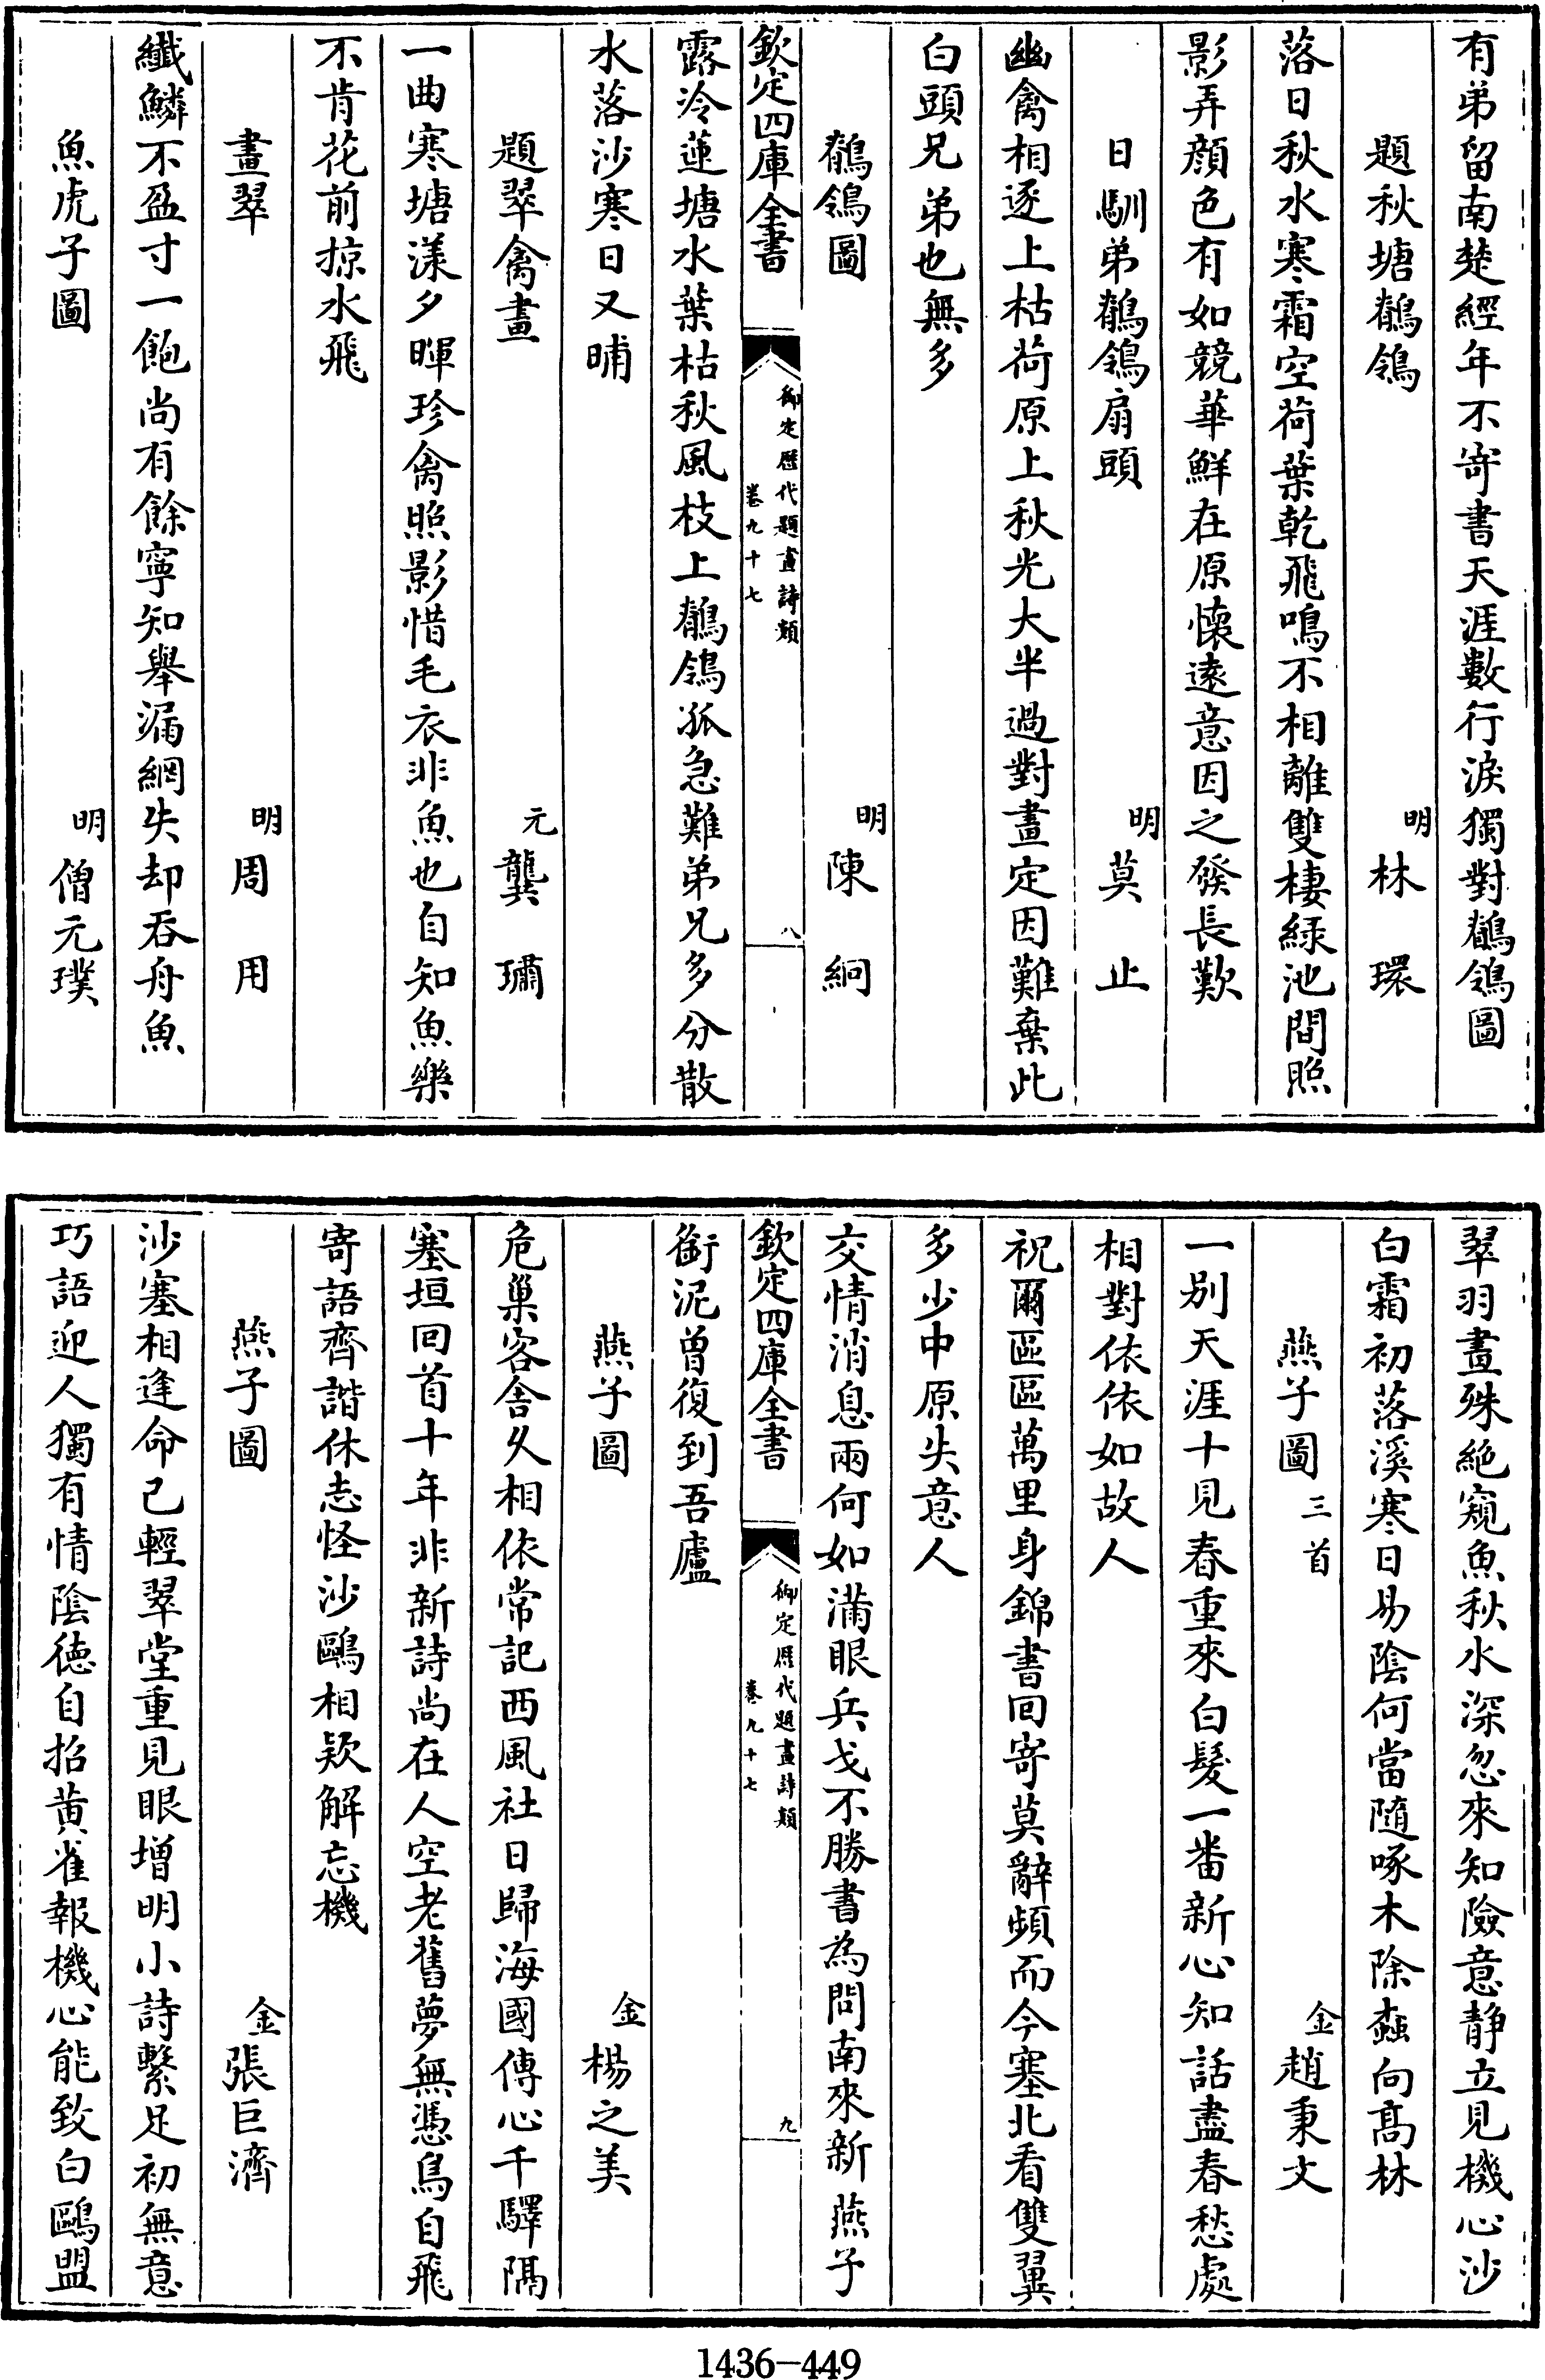 有弟留南楚經年不寄書天涯數行淚獨對鶺鴒圖
題秋塘鶺鴒　明林環
落日秋水寒霜空荷葉乾飛鳴不相離雙棲綠池間照
影弄顔色有如競華鮮在原懷遠意因之發長歎
日馴弟鶺鴒扇頭　明莫止
幽禽相逐上枯荷原上秋光大半過對畫定因難棄此
白頭兄弟也無多
鶺鴒圖　明陳絅
欽定四庫全書　御定歴代題畫詩類　卷九十七　八
露冷蓮塘水葉枯秋風枝上鶺鴒孤急難弟兄多分散
水落沙寒日又晡
題翠禽畫　元龔璛
一曲寒塘漾夕暉珍禽照影惜毛衣非魚也自知魚樂
不肯花前掠水飛
畫翠　明周用
纖鱗不盈寸一飽尚有餘寧知舉漏網失却吞舟魚
魚虎子圖　明僧元璞
翠羽畫殊絶窺魚秋水深忽來知險意静立見機心沙
白霜初落溪寒日易陰何當隨啄木除蠧向髙林
燕子圖三首　金趙秉文
一别天涯十見春重來白髮一番新心知話盡春愁處
相對依依如故人
祝爾區區萬里身錦書回寄莫辭頻而今塞北看雙翼
多少中原失意人
交情消息兩何如滿眼兵戈不勝書為問南來新燕子
欽定四庫全書　御定歴代題畫詩類　卷九十七　九
銜泥曾復到吾廬
燕子圖　金楊之美
危巢客舍久相依常記西風社日歸海國傳心千驛隔
塞垣回首十年非新詩尚在人空老舊夢無憑鳥自飛
寄語齊諧休志怪沙鷗相欵解忘機
燕子圖　金張巨濟
沙塞相逢命已輕翠堂重見眼增明小詩繫足初無意
巧語迎人獨有情陰徳自招黄雀報機心能致白鷗盟
1436-449